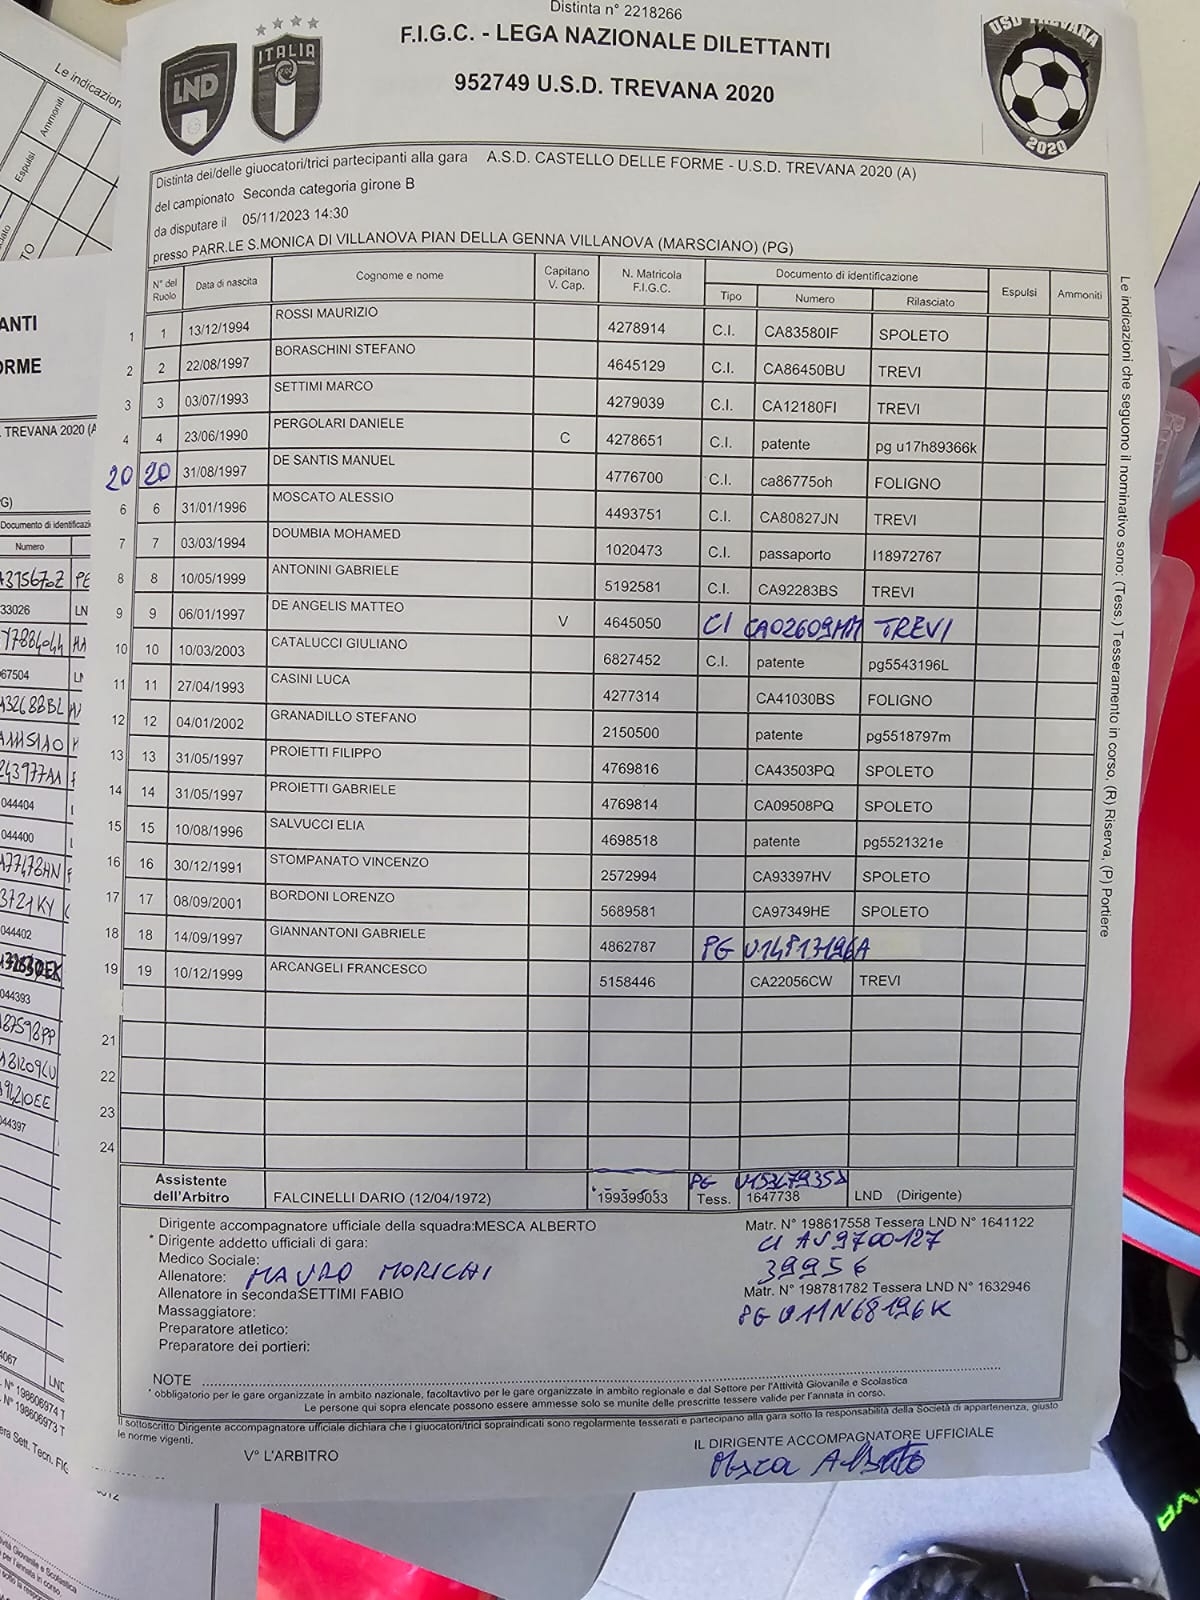 Distinta n° 2218266
F.I.G.C. - LEGA NAZIONALE DILETTANTI
952749 U.S.D. TREVANA 2020
LND
ITALIA
USD TREVANA
2020
Distinta dei/delle giuocatori/trici partecipanti alla gara A.S.D. CASTELLO DELLE FORME - U.S.D. TREVANA 2020 (A)
del campionato Seconda categoria girone B
da disputare il 05/11/2023 14:30
presso PARR.LE S.MONICA DI VILLANOVA PIAN DELLA GENNA VILLANOVA (MARSCIANO) (PG)
N° del Ruolo Data di nascita Cognome e nome Capitano V. Cap. N. Matricola F.I.G.C. Documento di identificazione Espulsi Ammoniti
Tipo Numero Rilasciato
1 1 13/12/1994 ROSSI MAURIZIO 4278914 C.I. CA83580IF SPOLETO
2 2 22/08/1997 BORASCHINI STEFANO 4645129 C.I. CA86450BU TREVI
3 3 03/07/1993 SETTIMI MARCO 4279039 C.I. CA12180FI TREVI
4 4 23/06/1990 PERGOLARI DANIELE C 4278651 C.I. patente pg u17h89366k
20 20 31/08/1997 DE SANTIS MANUEL 4776700 C.I. ca86775oh FOLIGNO
6 6 31/01/1996 MOSCATO ALESSIO 4493751 C.I. CA80827JN TREVI
7 7 03/03/1994 DOUMBIA MOHAMED 1020473 C.I. passaporto I18972767
8 8 10/05/1999 ANTONINI GABRIELE 5192581 C.I. CA92283BS TREVI
9 9 06/01/1997 DE ANGELIS MATTEO V 4645050 CI CA02609MM TREVI
10 10 10/03/2003 CATALUCCI GIULIANO 6827452 C.I. patente pg5543196L
11 11 27/04/1993 CASINI LUCA 4277314 CA41030BS FOLIGNO
12 12 04/01/2002 GRANADILLO STEFANO 2150500 patente pg5518797m
13 13 31/05/1997 PROIETTI FILIPPO 4769816 CA43503PQ SPOLETO
14 14 31/05/1997 PROIETTI GABRIELE 4769814 CA09508PQ SPOLETO
15 15 10/08/1996 SALVUCCI ELIA 4698518 patente pg5521321e
16 16 30/12/1991 STOMPANATO VINCENZO 2572994 CA93397HV SPOLETO
17 17 08/09/2001 BORDONI LORENZO 5689581 CA97349HE SPOLETO
18 18 14/09/1997 GIANNANTONI GABRIELE 4862787 PG U14813196A
19 19 10/12/1999 ARCANGELI FRANCESCO 5158446 CA22056CW TREVI
21
22
23
24
Assistente dell'Arbitro FALCINELLI DARIO (12/04/1972) 199399033 Tess. 1647738 LND (Dirigente)
PG
Dirigente accompagnatore ufficiale della squadra:MESCA ALBERTO Matr. N° 198617558 Tessera LND N° 1641122
* Dirigente addetto ufficiali di gara: CI AS9700127
Medico Sociale:
Allenatore: MAURO MORICHI 39956
Allenatore in seconda:SETTIMI FABIO Matr. N° 198781782 Tessera LND N° 1632946
Massaggiatore: PG U11N68196K
Preparatore atletico:
Preparatore dei portieri:
NOTE
* obbligatorio per le gare organizzate in ambito nazionale, facoltavtivo per le gare organizzate in ambito regionale e dal Settore per l'Attività Giovanile e Scolastica
Le persone qui sopra elencate possono essere ammesse solo se munite delle prescritte tessere valide per l'annata in corso.
Il sottoscritto Dirigente accompagnatore ufficiale dichiara che i giuocatori/trici sopraindicati sono regolarmente tesserati e partecipano alla gara sotto la responsabilità della Società di appartenenza, giusto
le norme vigenti.
V° L'ARBITRO
IL DIRIGENTE ACCOMPAGNATORE UFFICIALE
Mesca Alberto
Le indicazioni che seguono il nominativo sono: (Tess.) Tesseramento in corso, (R) Riserva, (P) Portiere
Le indicazion
Ammoniti
Espulsi
ANTI
ORME
TREVANA 2020 (A
Documento di identificazi
Numero
33026 LN
67504
044404
044400
044402
044393
044397
N° 198606974 T
N° 198606973 T